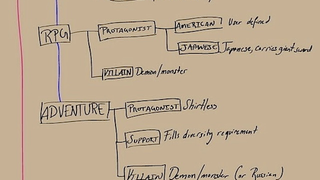 RPG
PROTAGONIST
AMERICAN
User defined
JAPANESE
Japanese, carries giant sword
VILLAIN
Demon/monster
ADVENTURE
PROTAGONIST
Shirtless
SUPPORT
Fills diversity requirement
VILLAIN
Demon/monster (or Russian)